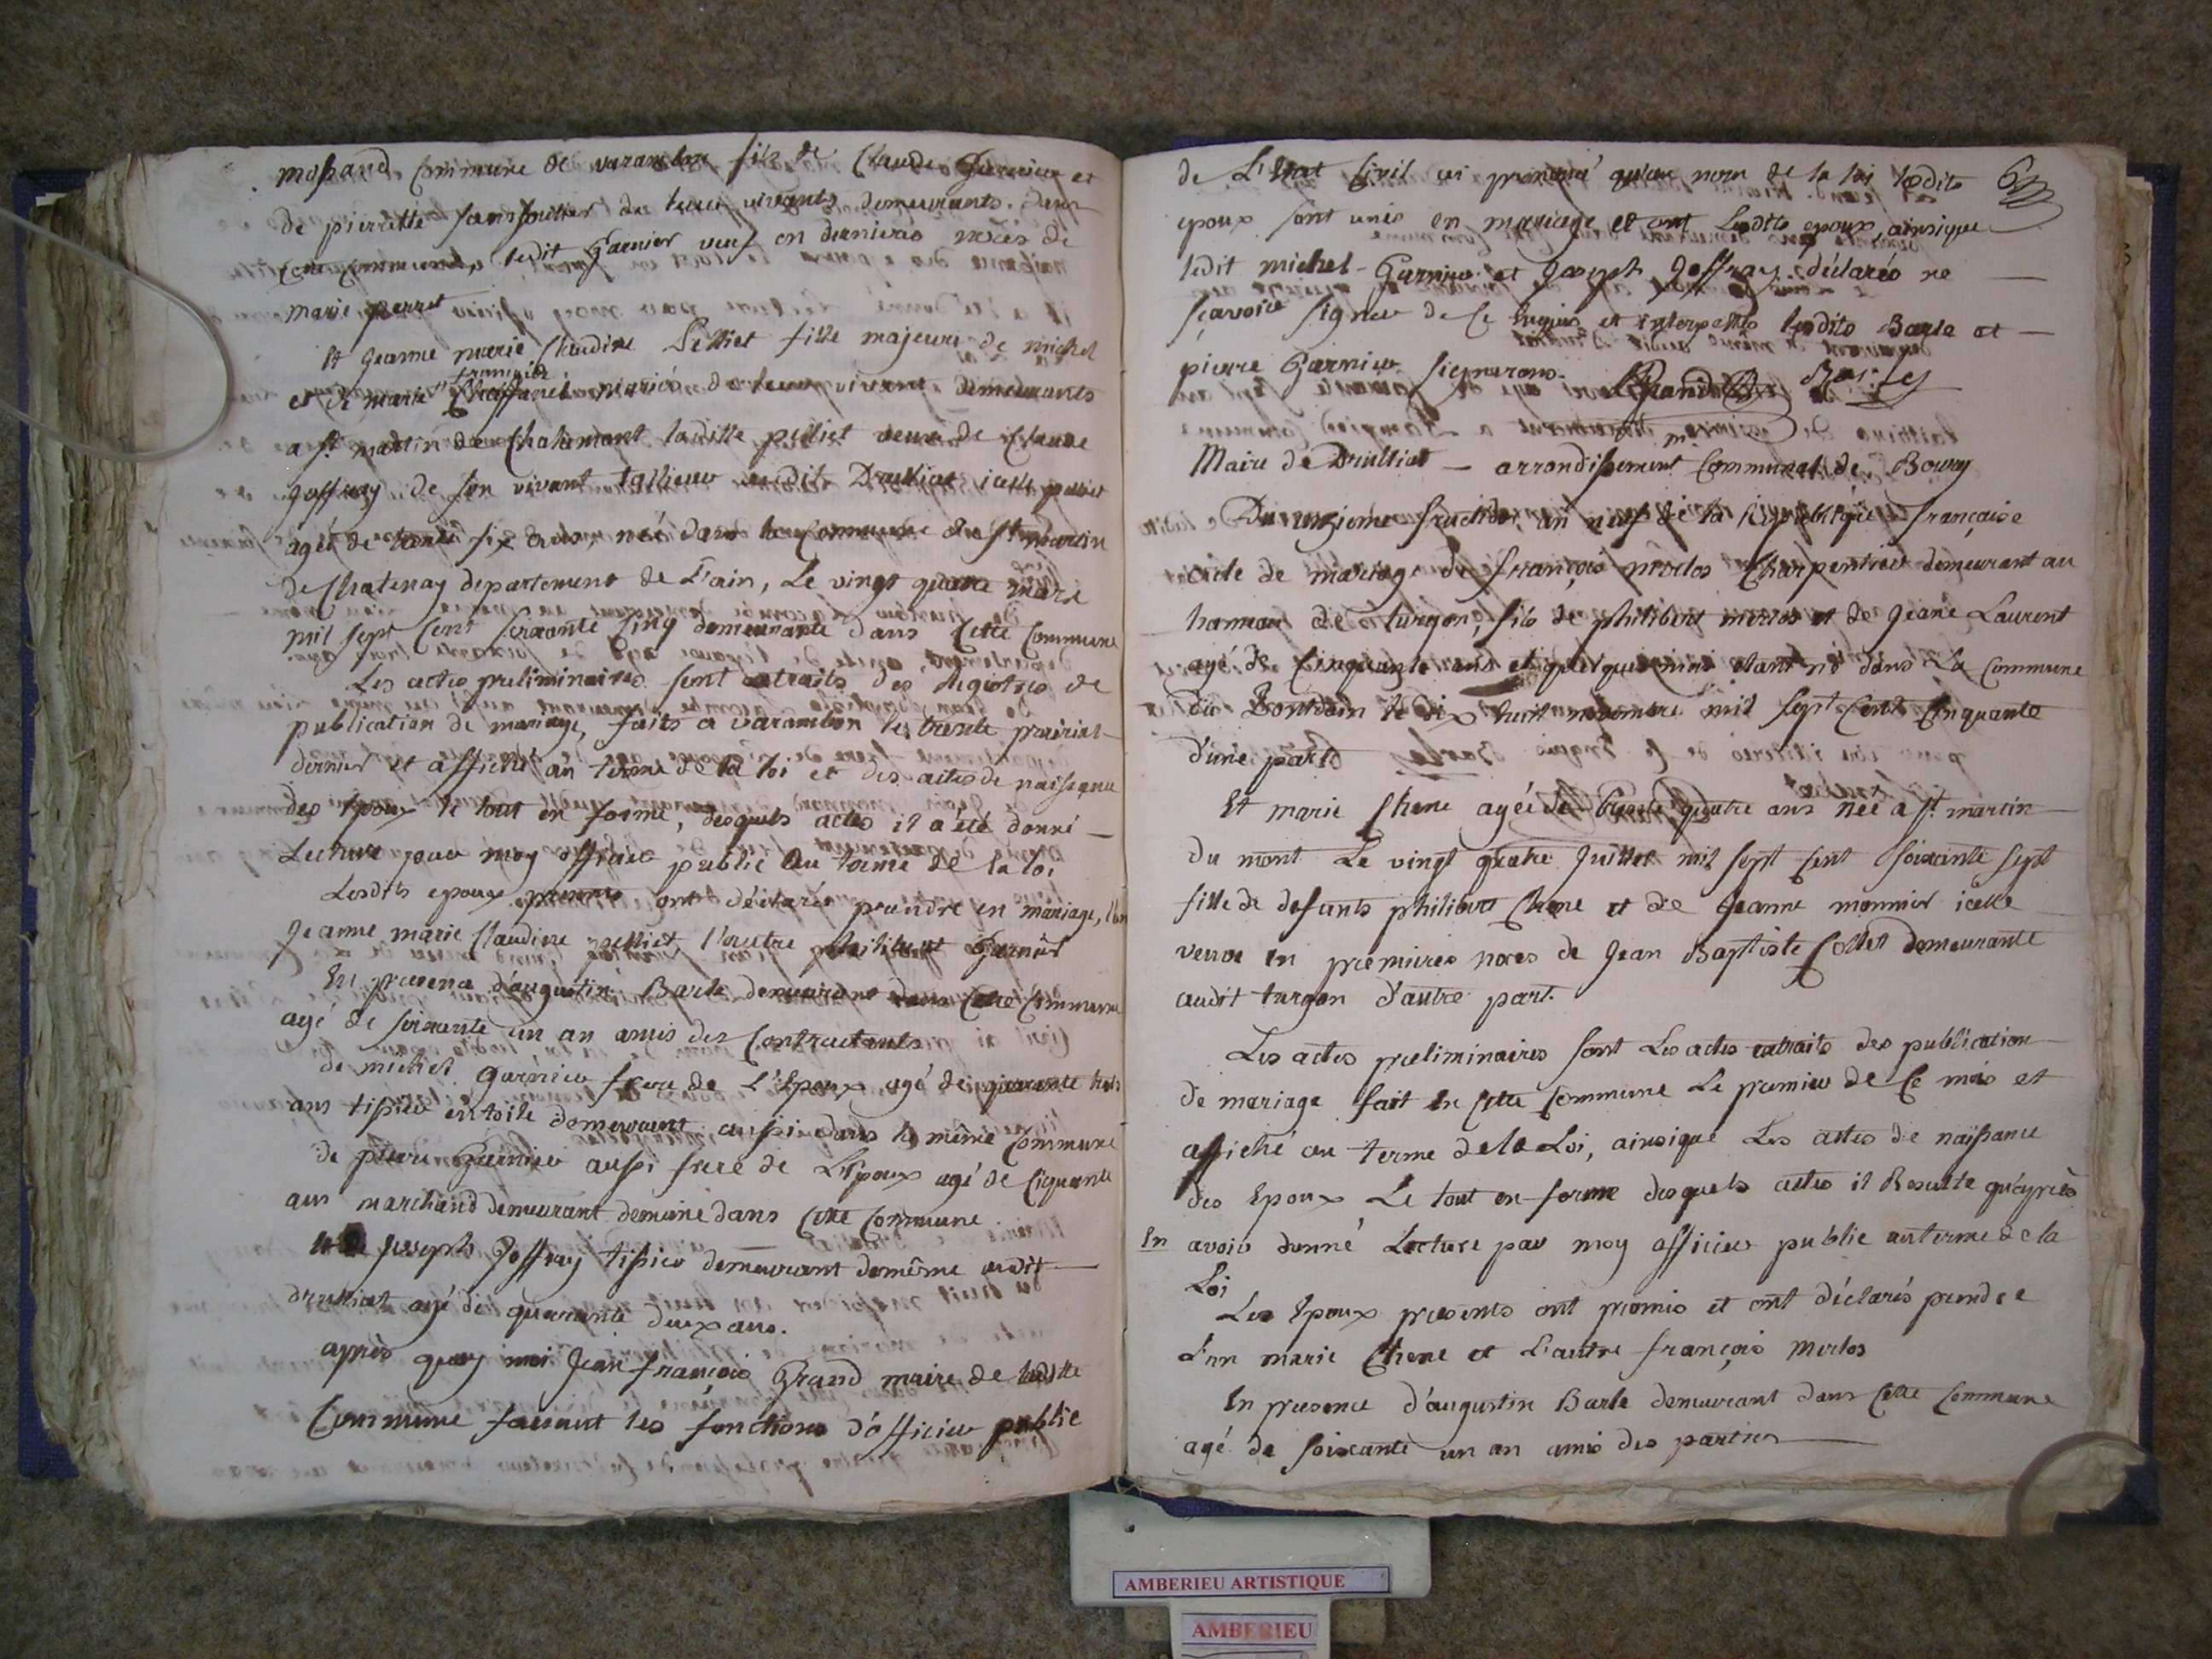 mossand Commune de varambon fils de Claude Garnier et
de pierrette de leur vivants demeurants dans
cette Commune, ledit Garnier veuf en dernieres noces de
marie perret
Et Jeanne marie Claudine Pelliet fille majeure de michel
françoise
et de marie mariés de leur vivant demeurants
a St martin de Chalamont laditte pelliet veuve de Claude
Joffray de son vivant tallieur audit Druilliat icelle pelliet
agée de trente six ans, née dans la Commune de St martin
de Chatenay departement de L'ain, Le vingt quatre mars
mil sept Cent soixante Cinq demeurante dans Cette Commune
Les actes preliminaires sont extraits des Registres de
publication de mariage, faits a varambon le trente prairial
dernier et affiché au terme de la loi et des actes de naissance
des Epoux le tout en forme, desquels actes il a été donné
Lecture par moy officier public au terme de la loi
Lesdits epoux presents ont déclarés prendre en mariage, l'un
Jeanne marie Claudine pelliet, l'autre philibert Garnier
En presence d'augustin Barle demeurant dans Cette Commune
agé de soixante un an amis des Contractants
de michel Garnier frere de L'Epoux agé de quarante trois
ans tissier en toile demeurant aussi dans la même Commune
de pierre Garnier aussi frere de L'Epoux agé de Ciquante
ans marchand demeurant demême dans Cette Commune
et Joseph Joffray tissier demeurant demême audit
druilliat agé de quarante deux ans.
après quoy moi Jean françois Grand maire de laditte
Commune faisant les fonctions d'officier public
de L'Etat Civil ai prononcé qu'au nom de la loi lesdits
epoux sont unis en mariage et ont Lesdits epoux, ainsique
ledit michel Garnier et Joseph Joffray déclarés ne
sçavoir signer de Ce Enquis et interpellés lesdits Barle et
pierre Garnier signerons. Grand Barle
Maire de Druilliat — arrondissement Communal de Bourg
Du onzieme fructidor, an neuf de la République française
acte de mariage de françois merlos Charpentier demeurant au
hameau de turgon, fils de philibert merlos et de Jeane Laurent
agé de Cinquante ans et quelques mois etant né dans La Commune
du Pontdain le dix huit novembre mil sept Cent Cinquante
d'une part
Et marie Chene agée de trente quatre ans née a St martin
du mont Le vingt quatre Juillet mil sept Cent soixante sept
fille de defunts philibert Chene et de Jeanne monnier icelle
veuve en premieres noces de Jean Baptiste Collet demeurante
audit turgon d'autre part.
Les actes preliminaires sont Les actes extraits des publication
de mariage fait en Cette Commune Le premier de Ce mois et
affiché au terme de la Loi, ainsique Les actes de naissance
des Epoux Le tout en forme desquels actes il Resulte qu'apres
En avoir donné Lecture par moy officier public au terme de la
Loi
Les Epoux presents ont promis et ont déclarés prendre
L'un marie Chene et L'autre françois merlos
En presence d'augustin Barle demeurant dans Cette Commune
agé de soixante un an amis des parties
AMBERIEU ARTISTIQUE
AMBERIEU